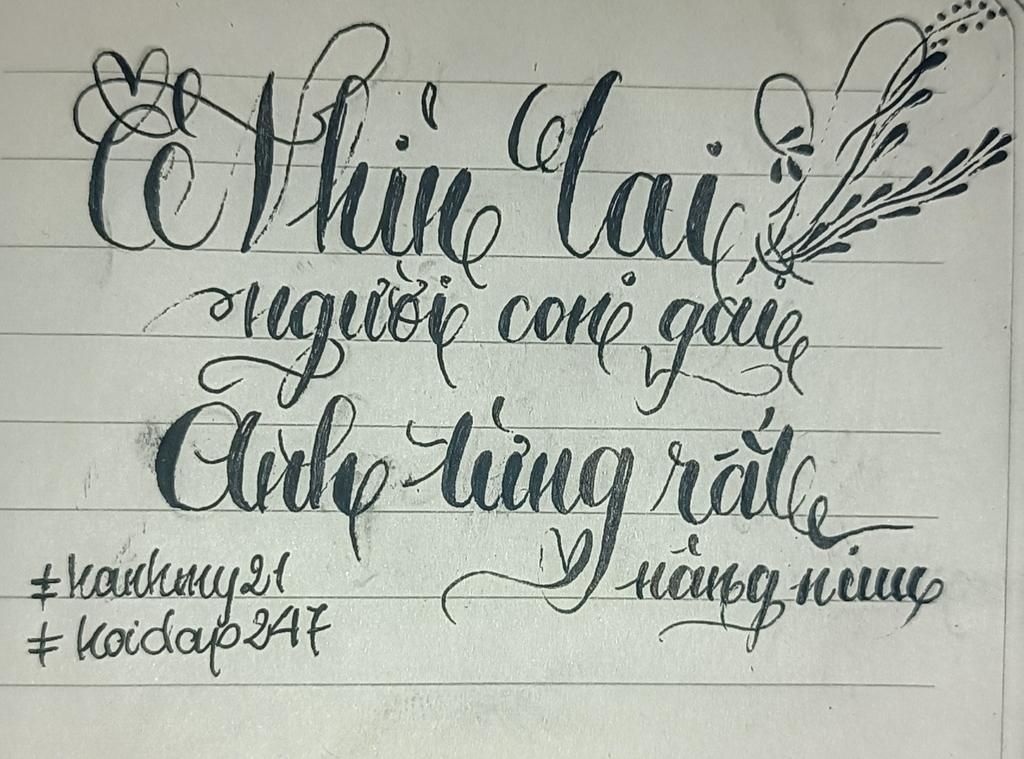 Nhìn lại
người con gái
Anh từng rất
nâng niu
#kankmy21
#hoidap247